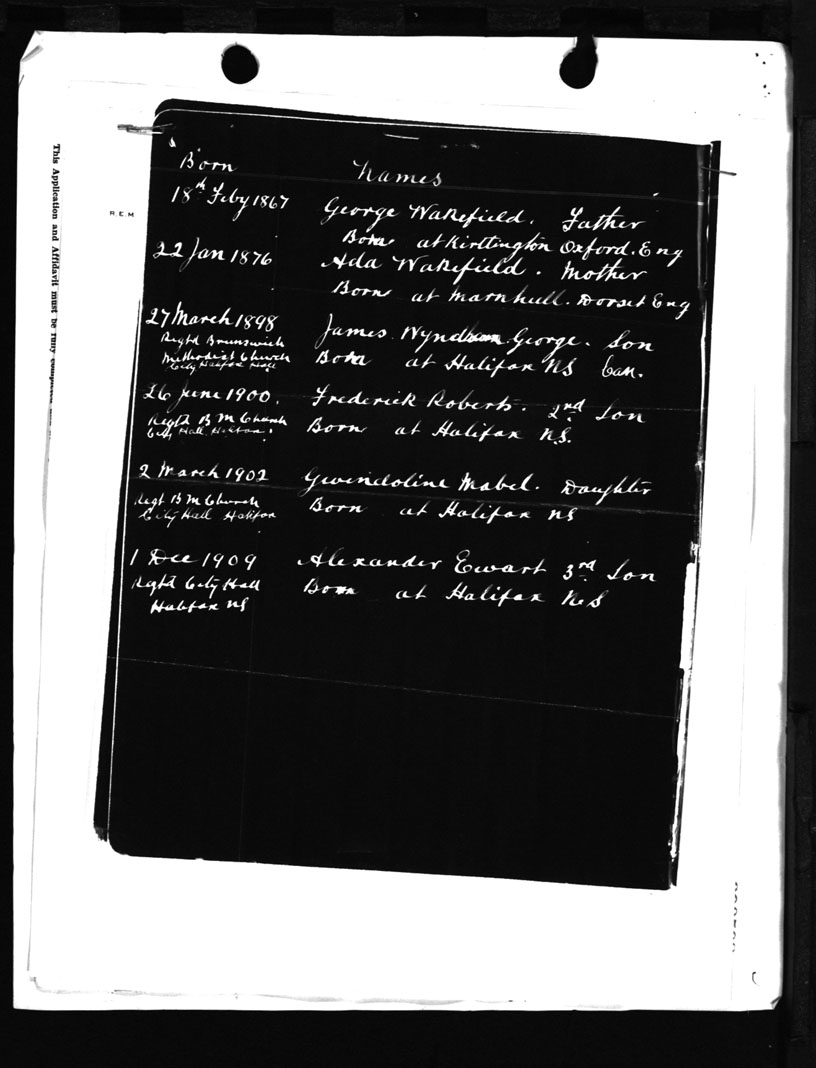 Born Names
18th Feby 1867 George Wakefield. Father
Born at Kirtlington Oxford. Eng
22 Jan 1876 Ada Wakefield. Mother
Born at Marnhull. Dorset Eng
27 March 1898 James Wyndham George. Son
Regtd Brunswick Born at Halifax NS Can.
Methodist Church
City Halifax Hall
26 June 1900. Frederick Roberts. 2nd Son
Regtd B M Church Born at Halifax N.S.
City Hall, Halifax.
2 March 1902 Gwendoline Mabel. Daughter
Regt B M Church Born at Halifax NS
City Hall Halifax
1 Dec 1909 Alexander Ewart 3rd Son
Regtd City Hall Born at Halifax N S
Halifax NS
R.E.M
This Application and Affidavit must be fully